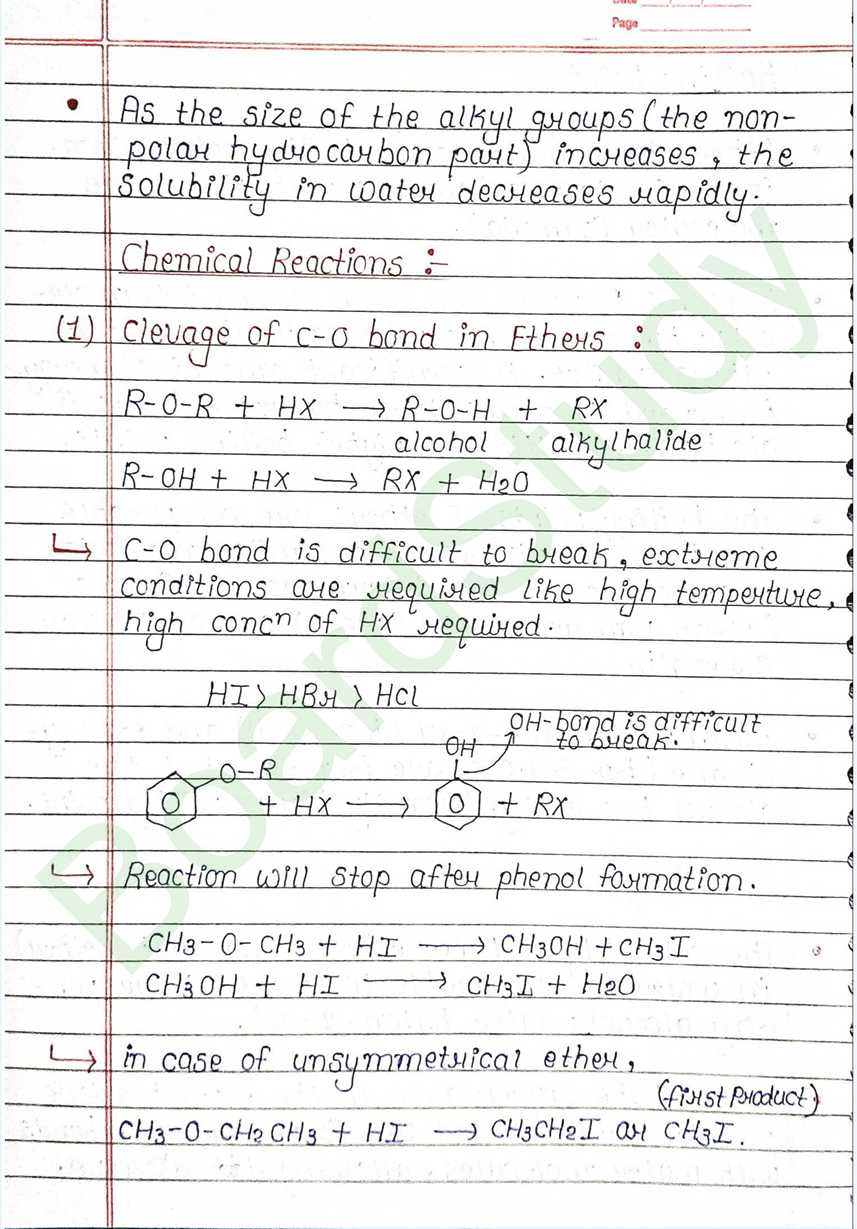 Date
Page
• As the size of the alkyl groups (the non-
polar hydrocarbon part) increases, the
solubility in water decreases rapidly.
Chemical Reactions :-
(1) Clevage of C-O bond in Ethers :
R-O-R + HX ⟶ R-O-H + RX
alcohol alkylhalide
R-OH + HX ⟶ RX + H2O
↳ C-O bond is difficult to break, extreme
conditions are required like high temperture,
high concⁿ of HX required.
HI > HBr > HCl
OH-bond is difficult
to break.
OH
O-R
+ HX ⟶ + RX
↳ Reaction will stop after phenol formation.
CH3-O-CH3 + HI ⟶ CH3OH + CH3I
CH3OH + HI ⟶ CH3I + H2O
↳ in case of unsymmetrical ether,
(first product)
CH3-O-CH2CH3 + HI ⟶ CH3CH2I or CH3I.
BoardStudy